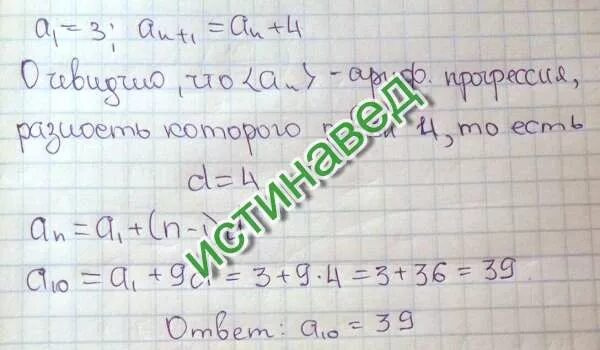 a₁ = 3; aₙ₊₁ = aₙ + 4
Очевидно, что <aₙ> - ариф. прогрессия,
разность которого 4, то есть
d = 4
aₙ = a₁ + (n - 1)
a₁₀ = a₁ + 9d = 3 + 9·4 = 3 + 36 = 39
Ответ: a₁₀ = 39
истинавед